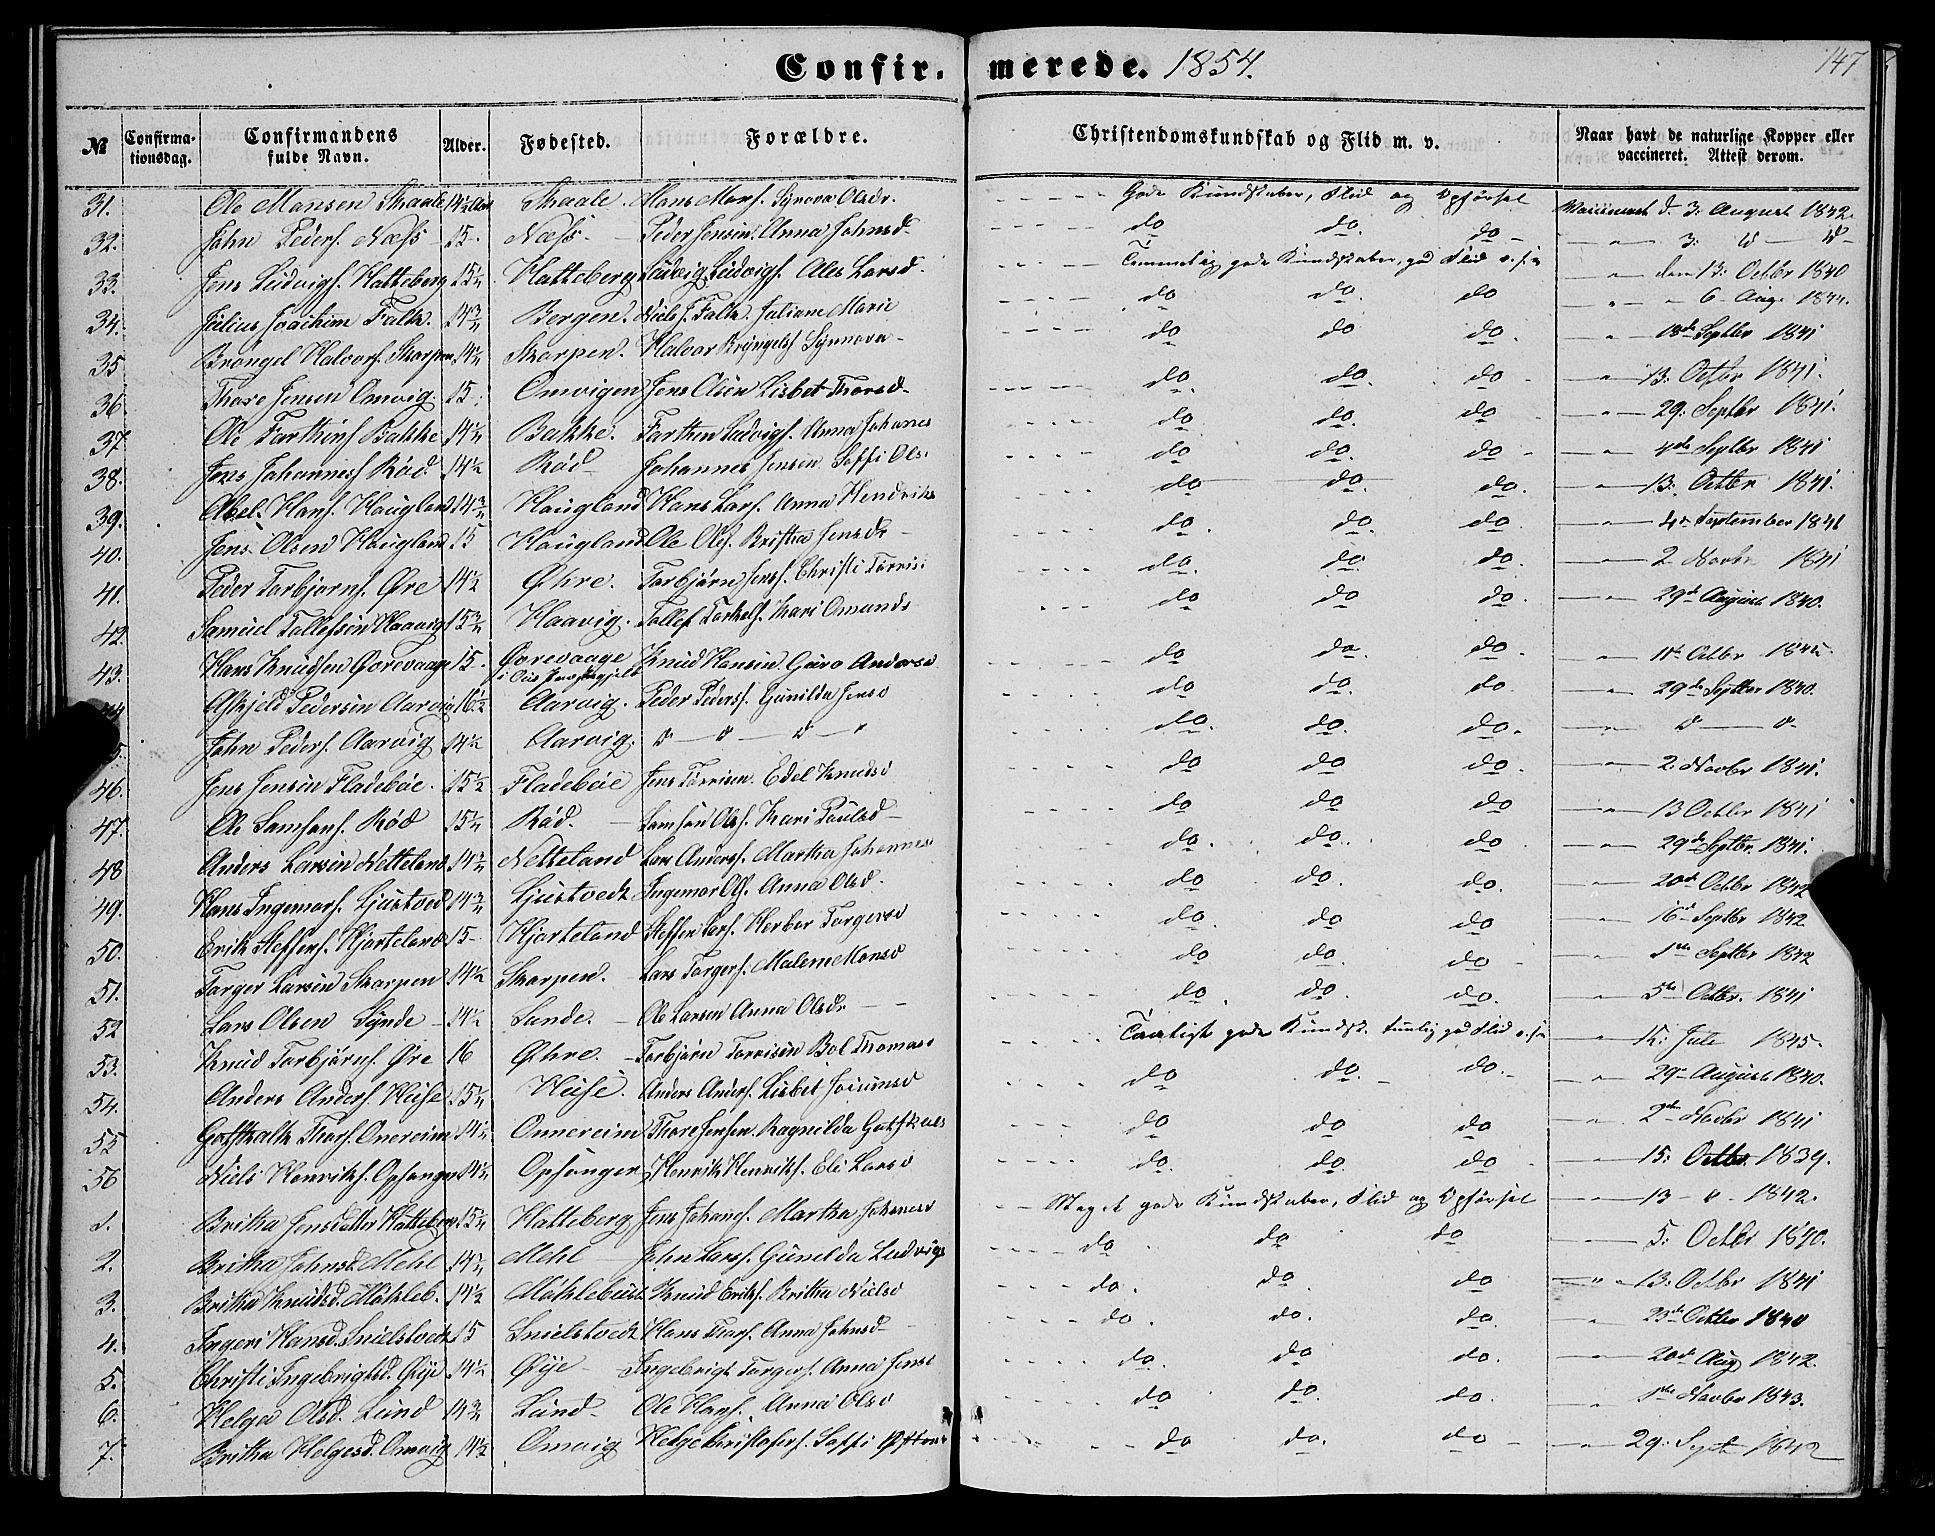 Confirmerede. 1854.
147
№ Confirmationsdag. Confirmandens fulde Navn. Alder. Fødested. Forældre. Christendomskundskab og Flid m. v. Naar havt de naturlige Kopper eller vaccineret. Attest derom.
31. Ole Monsen Skaale 14½ Skaale. Mons Mons. Synova Olsdr. Gode Kundskaber, Flid og Opførsel Vaccineret d. 3: August 1842.
32. John Peders. Næss 15. Næss. Peder Jensen. Anna Johnsd. do do. do 3:
33. Jens Ludvigs. Hatteberg 15¼ Hatteberg Ludvig Ludvigs. Ales Larsd. Temmelig gode Kundskaber, god Flid den 13: Octbr 1840
34. Julius Joachim Falk. 14¾ Bergen. Niels J. Falk. Juliane Marie do do. do 6 Aug. 1844.
35 Brøngel Halvors. Skarpen 14½ Skarpen. Halvor Brøngels. Synnova do do do. 18de Septbr 1841
36 Thore Jensen Omvig. 15. Omvigen Jens Olsen Lisbet Thorsd. do do. do 13: Octbr 1841.
37 Ole Farthins Bakke 14½ Bakke. Farthen Ludvigs. Anna Johanes do do. do 29: Septbr 1841.
38. Jens Johanness Röd. 14½ Röd Johannes Jensen Soffi Ols. do do. do 4de Septbr 1841
39. Abel Hans. Haugland 14¾ Haugland Hans Lars. Anna Hendriks do do. do. 13: Octbr 1841.
40. Jens Olsen Haugland 15 Haugland Ole Ols. Britha Jensdr do. do. do 4de September 1841
41. Peder Torbjørns. Øre 14½ Øhre. Torbjørn Jens. Christi Torris do. do do. 2 Novbr 1841
42. Samuel Tollefsen Haavig 15¾ Haavig. Tollef Torkels. Kari Omunds do do do. 29d August 1840.
43. Hans Knudsen Øorevaage 15. Øvrevaage Knud Hansen Guro Andersd do do. do. 11te Octbr 1842.
Askjeld Pedersen Aarvig 16½ Aarvig. Peder Peders. Gunilda Jensd do do. do 29de Septbr 1840.
John Peders. Aarvig 14½ Aarvig. do. do. do.
46. Jens Jensen Fladebøe. 15½ Fladebøe Jens Torrisen. Edel Knudsd do do do. 2. Novbr 1841.
47. Ole Samsons. Röd 15¼ Röd. Samson Ols. Kari Poulsd do do do 13 Octbr 1841
48 Anders Larsen Netteland 14¾ Netteland Lars Anders. Martha Johannes do. do. do. 29d Septbr. 1841.
49. Hans Ingemars. Ljustved 14¾ Ljustvedt Ingemar Ols. Anna Olsd. do do. do. 20d Octbr 1842
50. Erik Steffens. Hjorteland 15 Hjorteland Steffen Lars. Herbor Torgersd do. do do 16d Septbr 1842
51. Torger Larsen Skarpen 14½ Skarpen. Lars Torgers. Malene Monsd do do. do Septbr 1842
52 Lars Olsen Synde 14½ Sunde. Ole Larsen Anna Olsdr do. do. do. 5te Octbr. 1841
53. Knud Torbjørns. Øre 16 Øhre. Torbjørn Torrisen Bol Thomasd gode Kundsk. god Flid 15: Juli 1845.
54. Anders Anders. Huse 15¾ Huse. Anders Anders. Lisbet do do. do. 29 August 1840.
55 Gotskalk Thors. Onereim 14½ Onnereim Thore Jensen. Ragnilda Gotskals do do do Novbr 1841
56 Niels Henriks. Opsanger 14½ Opsanger Henrik Henriks. Eli Larsd do. do do 15: Octbr 1839.
1. Britha Jensdatter Hatteberg 15¾ Hatteberg Jens Johans. Martha Johanesd Meget gode Kundskaber, Flid og Opførsel 13 1842.
2. Britha Johnsd. Mehl 14¾ Mehl John Lars. Gunilda Ludvigs do do do 5: Octbr 1840.
3. Britha Knudsd. Möhleb. 14½ Möhlebust Knud Eriks. Britha Nielsd do. do do 13: Octbr 1841
4. Ingeri Hansd. Snielstvedt 15 Snielstvedt Hans Thors. Anna Johnsd do. do. do. 23de Octbr 1840
5. Christi Ingebrigtsd. Øije 14½ Øije Ingebrigt Torgers. Anna Jensd do. do do. 20d Aug 1842.
6. Helga Olsd. Lund 14¾ Lund Ole Hans. Anna Olsd do do. do. Novbr 1843.
7. Britha Helgesd. Omvig 14½ Omvig Helge Christofers. Soffi do do. do 29: Sept 1842